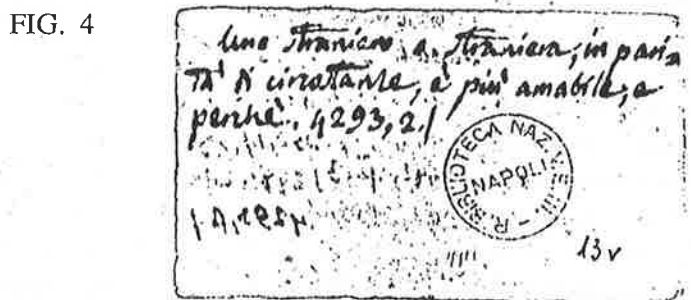 FIG. 4
Uno straniero o straniera, in pari-
tà di circostanze, è più amabile, e
perchè. 4293,2.
R. BIBLIOTECA NAZ. V. E. III. -
NAPOLI
13v